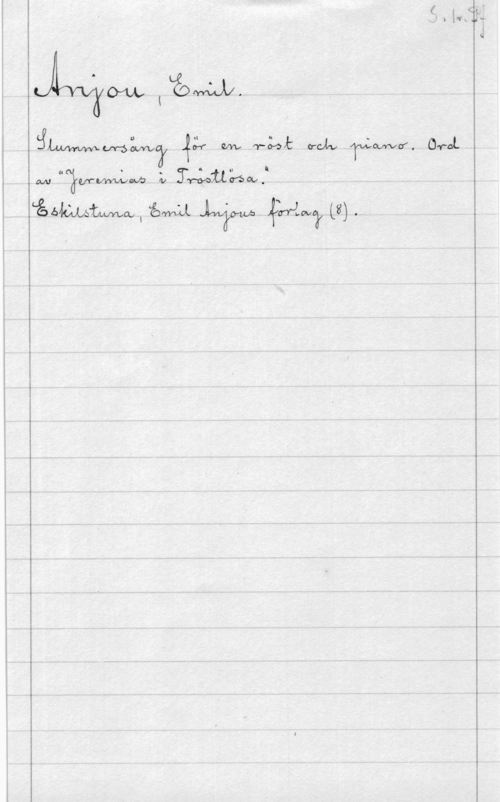 S. 1r. Pf
Anjou, Emil.
Slummersång för en röst och piano. Ord
av "Jeremias i Tröstlösa."
Eskilstuna, Emil Anjous förlag (8).